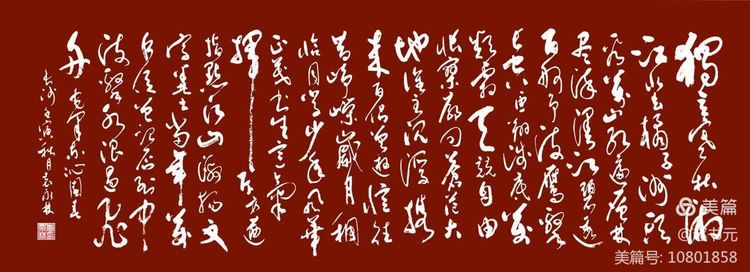 獨立寒秋湘
江北去橘子洲头
看万山红遍层林
尽染漫江碧透
百舸争流鹰击
长空鱼翔浅底万
类霜天竞自由
怅寥廓问苍茫大
地谁主沉浮携
来百侣曾游忆往
昔峥嵘岁月稠
恰同学少年风华
正茂书生意气
挥斥方遒
指点江山激扬文
字粪土当年万
户侯曾记否到中
流击水浪遏飞
舟 毛泽东沁园春
长沙壬寅秋月
美篇
美篇号: 10801858